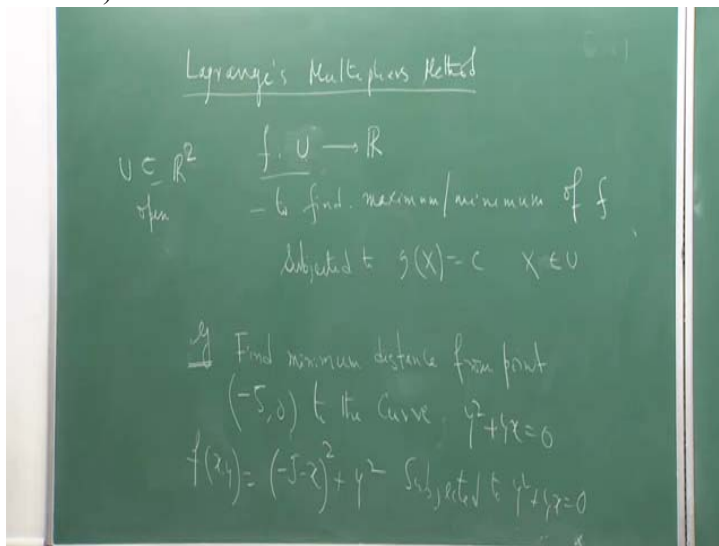 Lagrange's Multipliers Method
U ⊆ R² f: U → R
open – to find maximum/minimum of f
Subjected to g(X) = C X ∈ U
Eg Find minimum distance from point
(-5,0) to the curve y²+4x=0
f(x,y) = (-5-x)² + y² Subjected to y²+4x=0